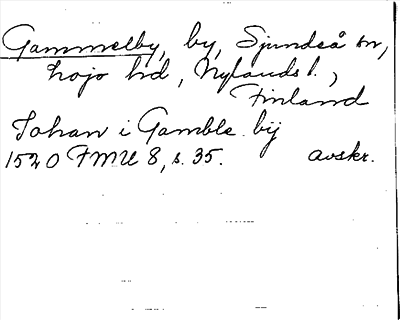 Gammelby, by, Sjundeå sn,
Lojo hd, Nylands l.,
Finland
Johan i Gamble by
1520 FMU 8, s. 35. avskr.